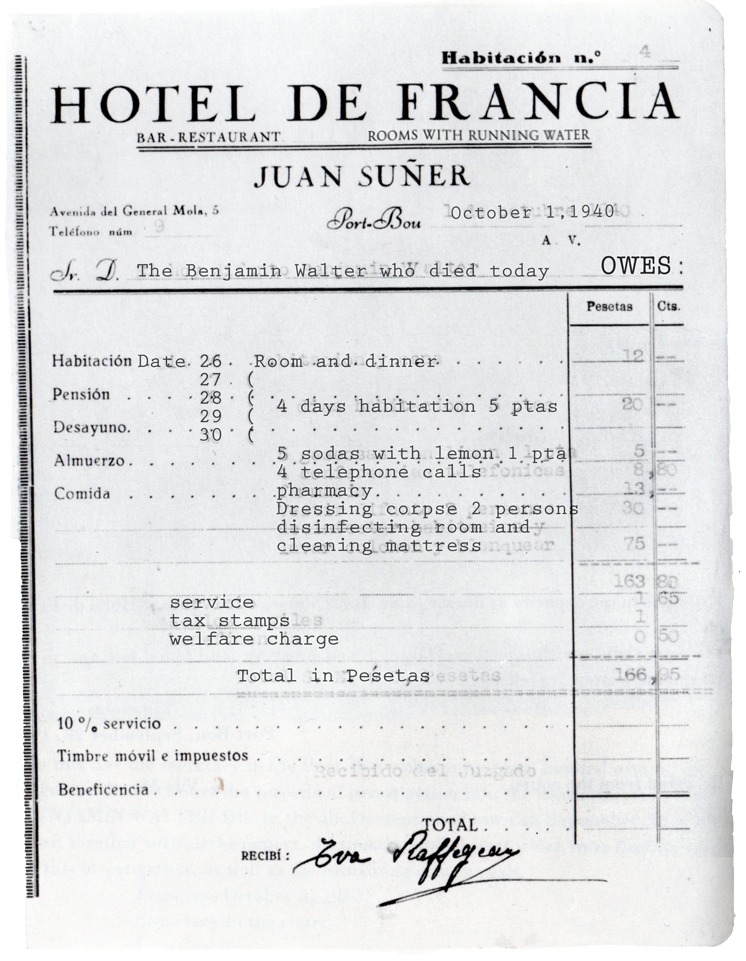 Habitación n.º 4
HOTEL DE FRANCIA
BAR-RESTAURANT ROOMS WITH RUNNING WATER
JUAN SUÑER
Avenida del General Mola, 5
Teléfono núm 9
Port-Bou October 1, 1940
A V.
Sr. D. The Benjamin Walter who died today OWES:
Pesetas Cts.
Habitación Date 26 . Room and dinner 12 --
27 (
Pensión 28 (
4 days habitation 5 ptas 20 --
29 (
Desayuno. 30 (
5 sodas with lemon 1 pta 5 --
Almuerzo 4 telephone calls 8,80
Comida pharmacy 13,--
Dressing corpse 2 persons 30 --
disinfecting room and
cleaning mattress 75 --
163 80
service 1 65
tax stamps 1
welfare charge 0 50
Total in Pesetas 166,95
10 % servicio
Timbre móvil e impuestos
Recibido del Juzgado
Beneficencia
TOTAL
RECIBÍ: